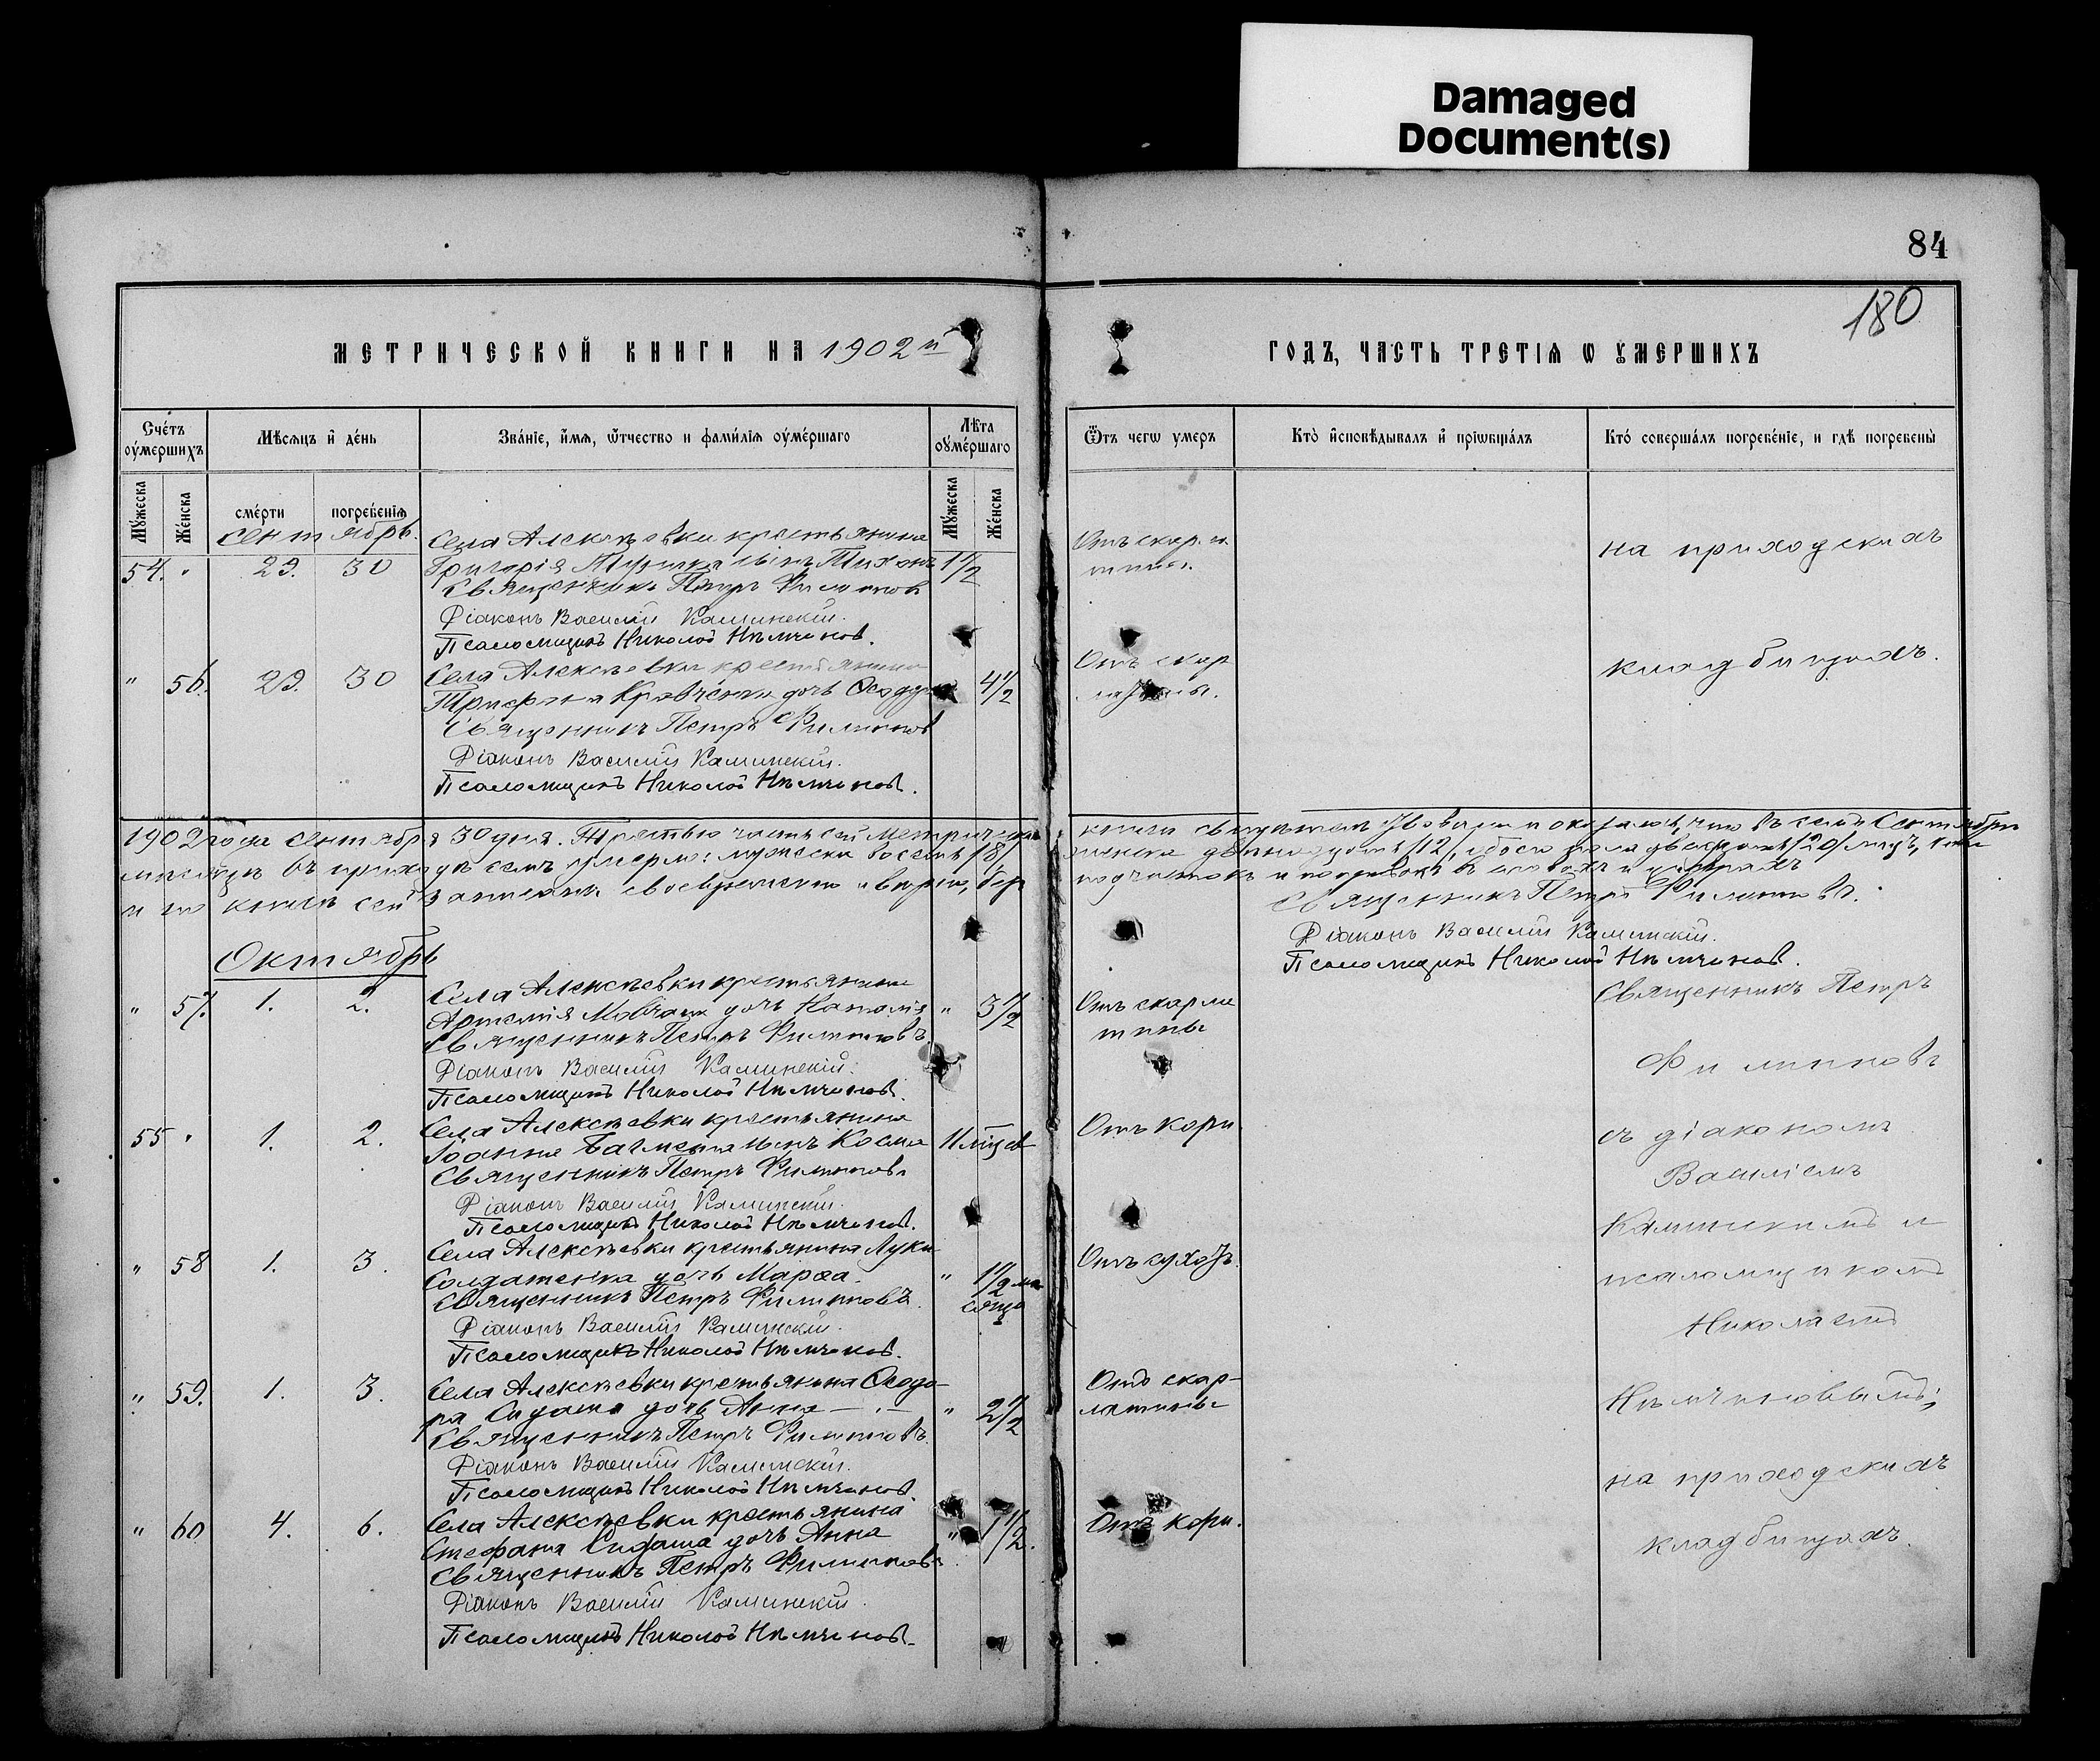 Damaged
Document(s)
84
180
МЕТРИЧЕСКОЙ КНИГИ НА 1902 й
ГОДЪ, ЧАСТЬ ТРЕТІѦ Ѡ ОУМЕРШИХЪ
Сче́тъ оу́мершихъ
Мѣ́сяцъ и҆ де́нь
Зва́ніе, и҆́мя, ѿчество и фами́лія оу҆ме́ршаго
Лѣ́та оу҆ме́ршаго
Ѿтъ чегѡ умеръ
Кто̀ и҆сповѣ́дывалъ и҆ прїѡбща́лъ
Кто́ соверша́лъ погребе́ніе, и гдѣ̀ погребены̀
Му́жеска
Же́нска
сме́рти
погребе́нія
Му́жеска
Же́нска
сентябрь.
Села Алексѣевки крестьянина
54. " 29. 30 Григорія сынъ Тихонъ 1 1/2
Священникъ Петръ Филиповъ
Діаконъ Василій Каминскій.
Псаломщикъ Николай Нѣмчинов.
Отъ скарла
тины.
на приходскихъ
" 56. 29. 30 Села Алексѣевки крестьянина
Трифона Кравченка дочь 4 1/2
Священникъ Петръ Филиповъ
Діаконъ Василій Каминскій.
Псаломщикъ Николай Нѣмчинов.
Отъ скар
латины.
кладбищахъ.
1902 года сентября 30 дня. Третью часть сей метрической
книги свидѣтельствовали и оказалось, что въ семъ Сентябрѣ
мѣсяцѣ въ приходѣ семъ умерло: мужеска восемь /8/
женска двѣнадцать /12/, обоего пола двадцать /20/ лицъ, кои
и по книгѣ сей записаны своевременно и вѣрно, безъ
подчистокъ и поправокъ въ словахъ и цифрахъ
Священникъ Петръ Филиповъ.
Діаконъ Василій Каминскій.
Псаломщикъ Николай Нѣмчинов.
Октябрь
" 57. 1. 2. Села Алексѣевки крестьянина
Артемія Мовчана дочь Наталія " 3 1/2
Священникъ Петръ Филиповъ.
Діаконъ Василій Каминскій.
Псаломщикъ Николай Нѣмчинов.
Отъ скарла
тины
Священникъ Петръ
Филиповъ
55 " 1. 2. Села Алексѣевки крестьянина
Іоанна сынъ Косма 11 мцсв
Священникъ Петръ Филиповъ
Діаконъ Василій Каминскій.
Псаломщикъ Николай Нѣмчинов.
Отъ кори.
съ діакономъ
Василіемъ
" 58 1. 3. Села Алексѣевки крестьянина Луки
Солдатенка дочь Марѳа. " 1 1/2 мѣ
сяца
Священникъ Петръ Филиповъ.
Діаконъ Василій Каминскій.
Псаломщикъ Николай Нѣмчинов.
Отъ сухот.
Каминскимъ и
псаломщикомъ
Николаемъ
" 59. 1. 3. Села Алексѣевки крестьянина Ѳеодо-
ра Сидаша дочь Анна " 2 1/2
Священникъ Петръ Филиповъ.
Діаконъ Василій Каминскій.
Псаломщикъ Николай Нѣмчинов.
Отъ скар-
латины
Нѣмчиновымъ;
на приходскихъ
" 60 4. 6. Села Алексѣевки крестьянина
Стефана Сидаша дочь Анна " 1 1/2.
Священникъ Петръ Филиповъ.
Діаконъ Василій Каминскій.
Псаломщикъ Николай Нѣмчинов.
Отъ кори.
кладбищахъ.